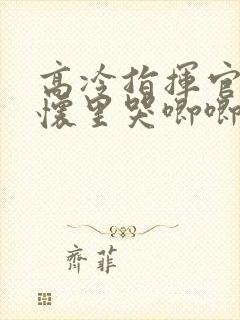 高冷指揮官
懷里哭唧唧
齊菲